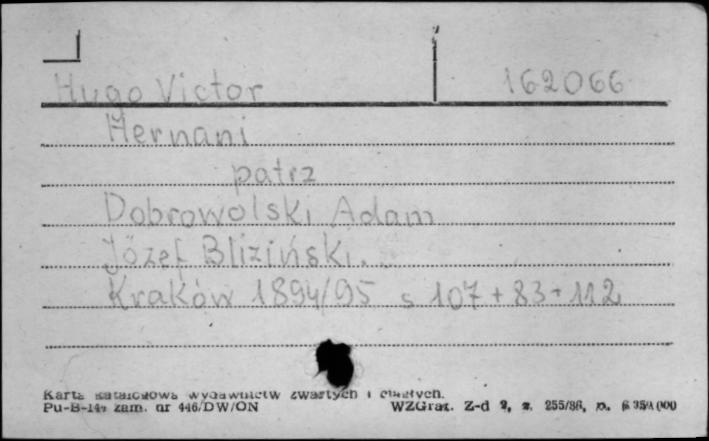 Hugo Victor 162066
Hernani
patrz
Dobrowolski Adam
Józef Bliziński.
Kraków 1894/95 s 107 + 83 + 112
Karta katalogowa wydawnictw zwartych i ciągłych.
Pu-B-14 zam. nr 446/DW/ON WZGraf. Z-d 2, z. 255/86, n.